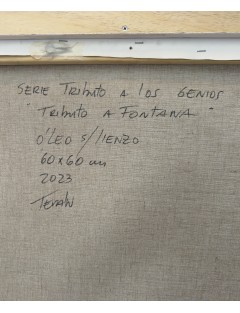 SERIE TRIBUTO A LOS GENIOS
" TRIBUTO A FONTANA "
ÓLEO S/LIENZO
60 x 60 cm
2023